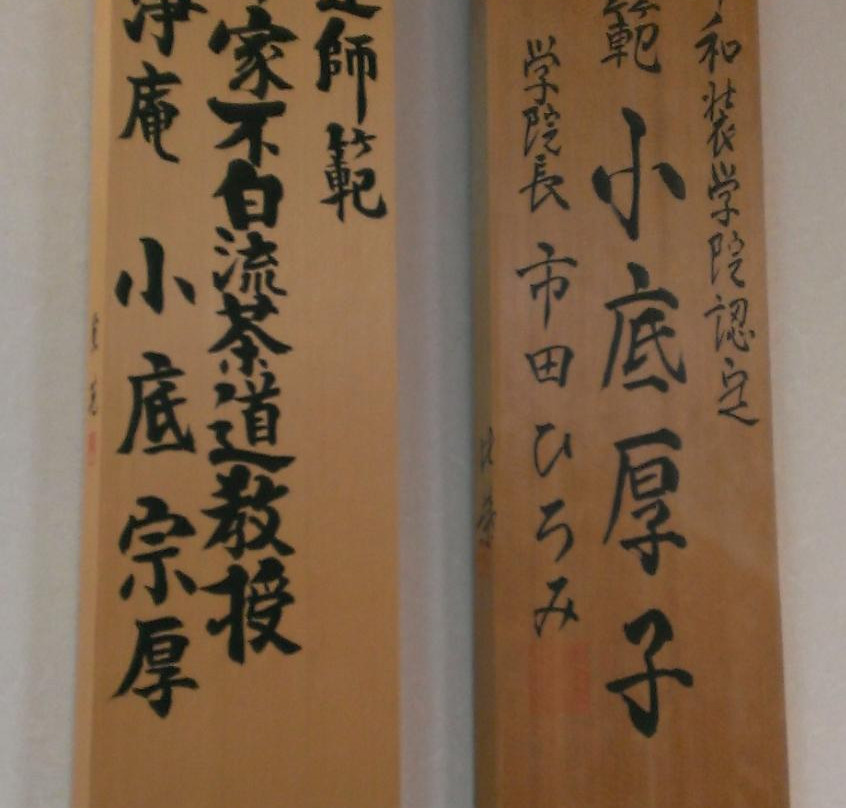 和装学院認定
範 小底厚子
学院長 市田ひろみ
師範
家不白流茶道教授
浄庵 小底宗厚